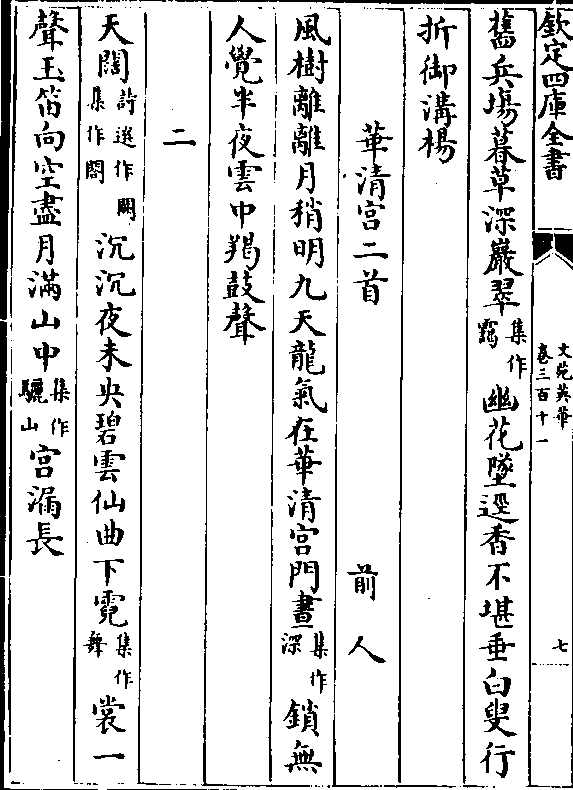 欽定四庫全書
文苑英華
卷三百十一
七
舊兵場暮草深巖翠集作靄幽花墜逕香不堪垂白叟行
折御溝楊
華清宮二首
前人
風樹離離月稍明九天龍氣在華清宮門晝集作深鎖無
人覺半夜雲中羯鼓聲
二
天闊詩選作闕集作閣沉沉夜未央碧雲仙曲下霓集作舞裳一
聲玉笛向空盡月滿山中集作驪山宮漏長